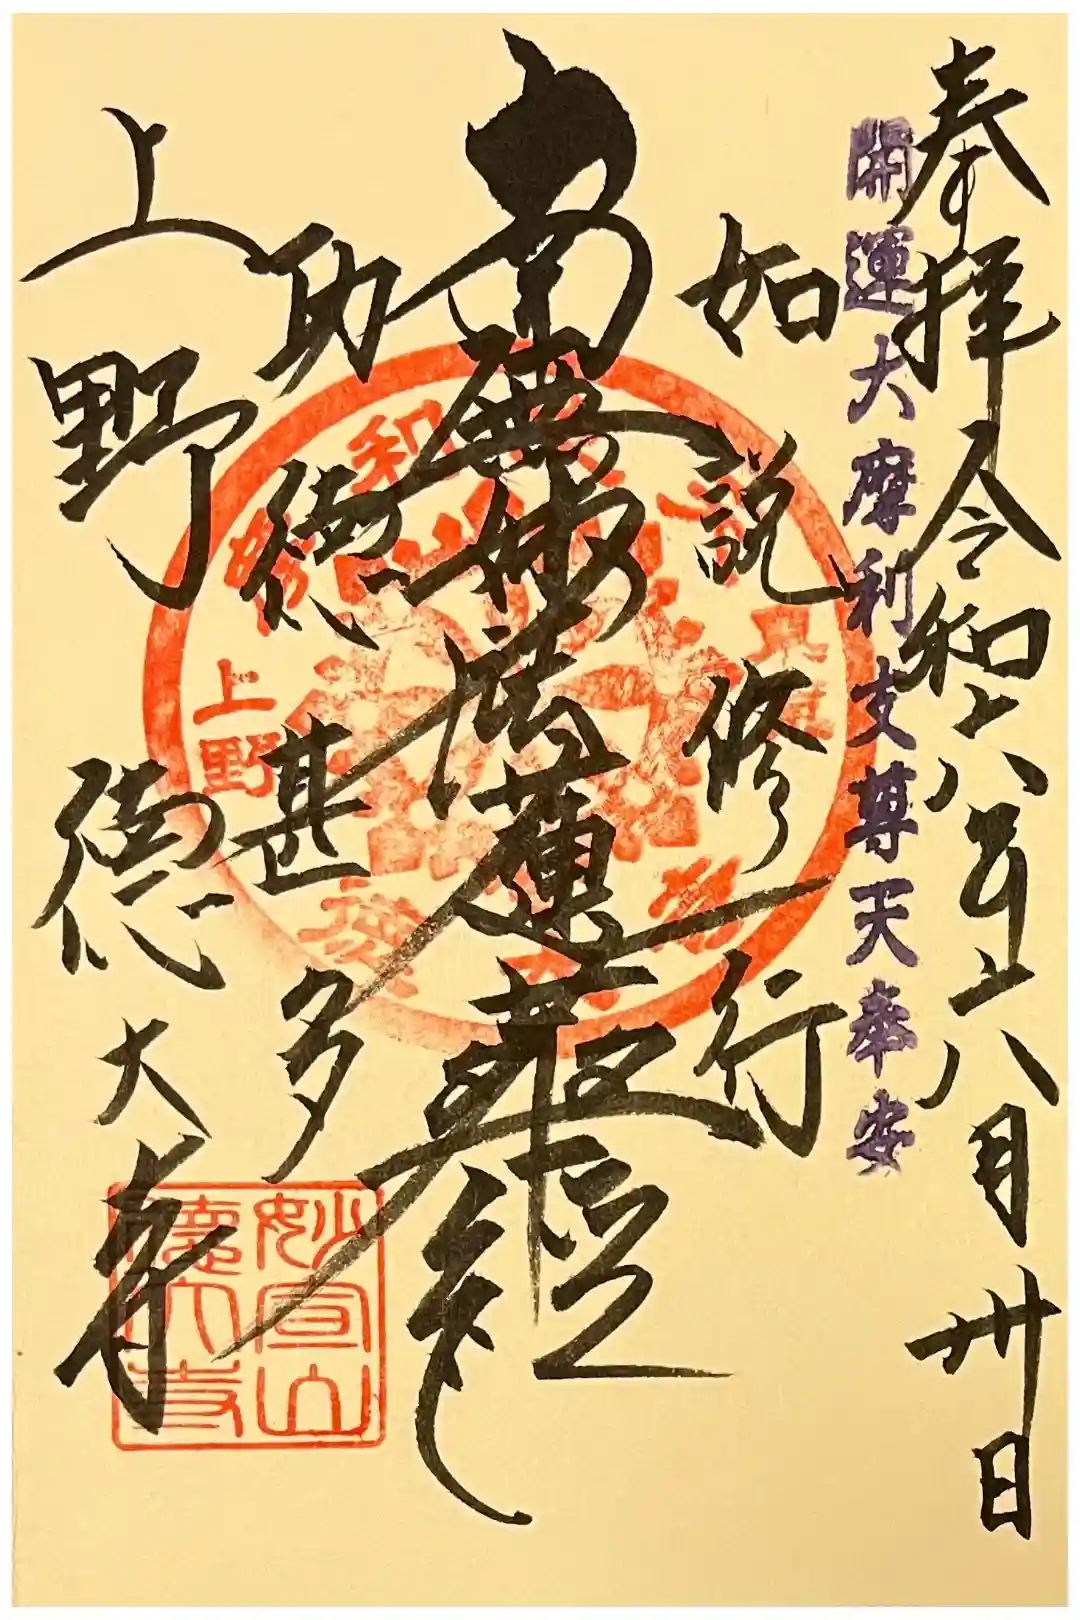 奉拝 令和六年六月卅日
開運大摩利支尊天奉安
如説修行
南無妙法蓮華経
功徳甚多
上野 徳大寺
上野
妙宣山
徳大寺